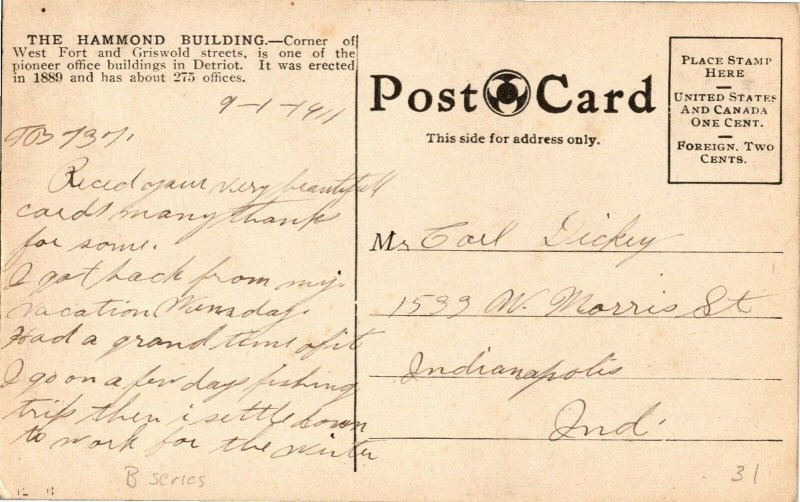 THE HAMMOND BUILDING.—Corner of
West Fort and Griswold streets, is one of the
pioneer office buildings in Detriot. It was erected
in 1889 and has about 275 offices.
9-1-1911
Reced your very beautifull
cards many thanks
for some.
I got back from my
vacation Wensday.
Had a grand time of it
I go on a few days fishing
trip then i settle down
to work for the winter
B series
Post Card
This side for address only.
PLACE STAMP
HERE
UNITED STATES
AND CANADA
ONE CENT.
FOREIGN, TWO
CENTS.
Mr Carl Dickey
1533 W. Morris St
Indianapolis
Ind.
31